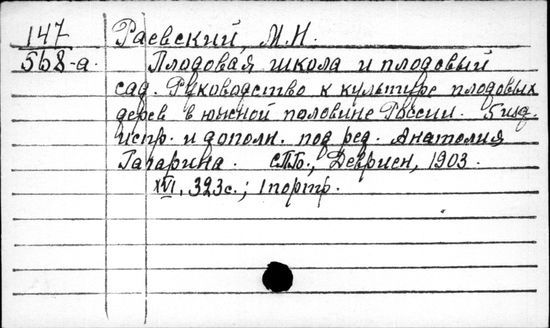 147 Раевский, М.Н.
568-а. Плодовая школа и плодовый
сад. Руководство к культуре плодовых
дерев в южной половине России. 5 изд.
испр. и дополн. под ред. Анатолия
Гагарина. СПб., Девриен, 1903.
XVI, 323с.; 1 портр.